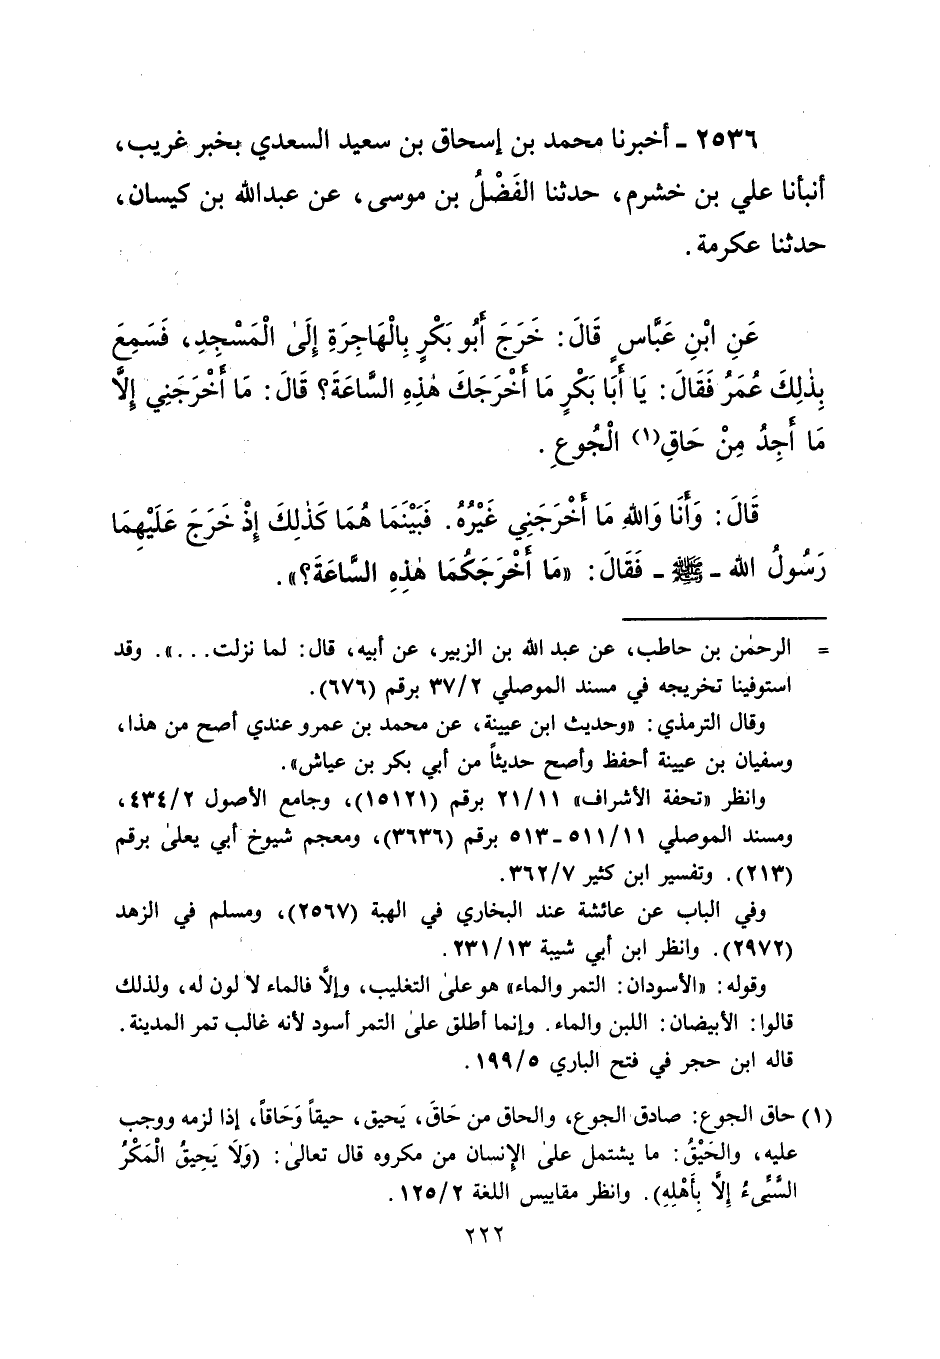 ٢٥٣٦ ـ أخبرنا محمد بن إسحاق بن سعيد السعدي بخبر غريب،
أنبأنا علي بن خشرم، حدثنا الفَضْلُ بن موسى، عن عبدالله بن كيسان،
حدثنا عكرمة.
عَنِ ابْنِ عَبَّاسٍ قَالَ: خَرَجَ أَبُو بَكْرٍ بِالْهَاجِرَةِ إِلَىٰ الْمَسْجِدِ، فَسَمِعَ
بِذٰلِكَ عُمَرُ فَقَالَ: يَا أَبَا بَكْرٍ مَا أَخْرَجَكَ هٰذِهِ السَّاعَةَ؟ قَالَ: مَا أَخْرَجَنِي إِلَّا
مَا أَجِدُ مِنْ حَاقِ(١) الْجُوعِ.
قَالَ: وَأَنَا وَاللهِ مَا أَخْرَجَنِي غَيْرُهُ. فَبَيْنَمَا هُمَا كَذٰلِكَ إِذْ خَرَجَ عَلَيْهِمَا
رَسُولُ الله ـ ﷺ ـ فَقَالَ: «مَا أَخْرَجَكُمَا هٰذِهِ السَّاعَةَ؟».
= الرحمٰن بن حاطب، عن عبد الله بن الزبير، عن أبيه، قال: لما نزلت...». وقد
استوفينا تخريجه في مسند الموصلي ٣٧/٢ برقم (٦٧٦).
وقال الترمذي: «وحديث ابن عيينة، عن محمد بن عمرو عندي أصح من هذا،
وسفيان بن عيينة أحفظ وأصح حديثاً من أبي بكر بن عياش».
وانظر «تحفة الأشراف» ٢١/١١ برقم (١٥١٢١)، وجامع الأصول ٤٣٤/٢،
ومسند الموصلي ٥١١/١١ ـ ٥١٣ برقم (٣٦٣٦)، ومعجم شيوخ أبي يعلىٰ برقم
(٢١٣). وتفسير ابن كثير ٣٦٢/٧.
وفي الباب عن عائشة عند البخاري في الهبة (٢٥٦٧)، ومسلم في الزهد
(٢٩٧٢). وانظر ابن أبي شيبة ٢٣١/١٣.
وقوله: «الأسودان: التمر والماء» هو علىٰ التغليب، وإلَّا فالماء لا لون له، ولذلك
قالوا: الأبيضان: اللبن والماء. وإنما أطلق علىٰ التمر أسود لأنه غالب تمر المدينة.
قاله ابن حجر في فتح الباري ١٩٩/٥.
(١) حاق الجوع: صادق الجوع، والحاق من حَاقَ، يَحيق، حيقاً وَحَاقاً، إذا لزمه ووجب
عليه، والحَيْقُ: ما يشتمل علىٰ الإنسان من مكروه قال تعالىٰ: (وَلَا يَحِيقُ الْمَكْرُ
السَّيِّىءُ إِلَّا بِأَهْلِهِ). وانظر مقاييس اللغة ١٢٥/٢.
٢٢٢